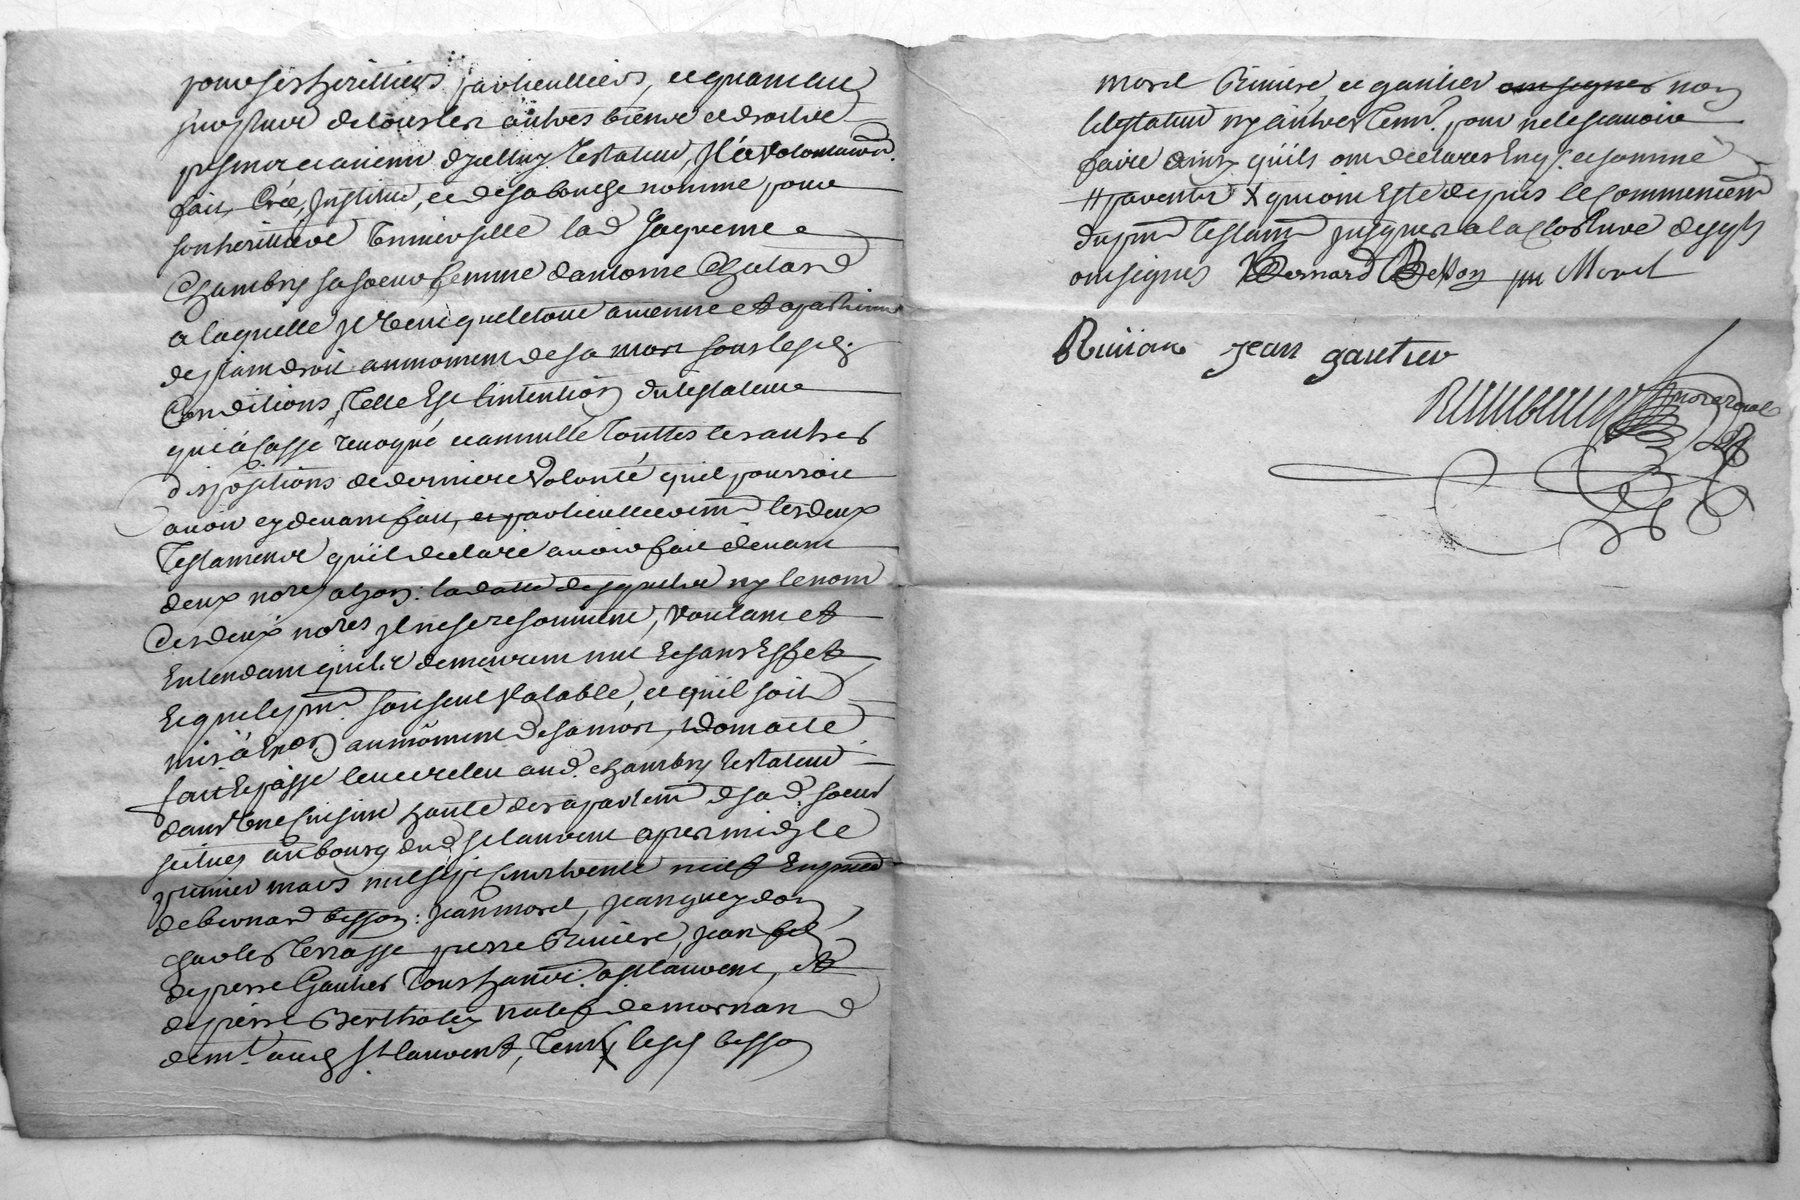 pour ses heritiers particulliers, et quant au
surplus de tous les autres biens et droits
presents et avenir dyceluy testateur, Jl a volontairemt.
fait, Créé, Jnstitué, et de sa bouche nommé pour
son heritiere Vniverselle lad. Jaqueme
Chambry sa soeur femme dantoine Chatard
a laquelle Jl veut que le tout avienne et apartienne
de plain droit au moment de sa mort sous lesd.
Conditions, Telle Est lintention du testateur
qui à cassé revoqué et annullé touttes les autres
dispositions de derniere Volonté quil pourroit
avoir cy devant fait, et particullierement les deux
Testaments quil declare avoir fait devant
deux nores a lyon: la datte desquels ny le nom
Des deux nores Jl ne se resouvient, Voulant et
Entendant quils demeurent nul Et sans Effet
Et que le pnt soit seul Valable, et quil soit
mis à Exon au moment de sa mort, Dont acte
fait Et passé leu et releu aud. chambry testateur
dans Vne Cuisine haute des apartemt de sad. soeur
scitués au bourg dud St laurent apres midy le
premier mars mil sept Cens trente neuf En presence
de bernard besson: Jean morel, Jean gueydon
charles terrasse pierre Riviere, Jean fils
de pierre Gautier tous habit. a St laurent, et
de pierre Bertholey natif de mornand
demt. aud St. laurent, tem. lesd besson
morel Riviere, et gautier ont signes non
le testateur ny autres tem. pour ne le scavoir
faire ainsy quils ont declarés Enq. et sommé
# qui ont Esté depuis le commencemt
du pnt testamt jusques a la Closture dyceluy
ont signes Bernard Besson Morel
Riviere Jean gautier